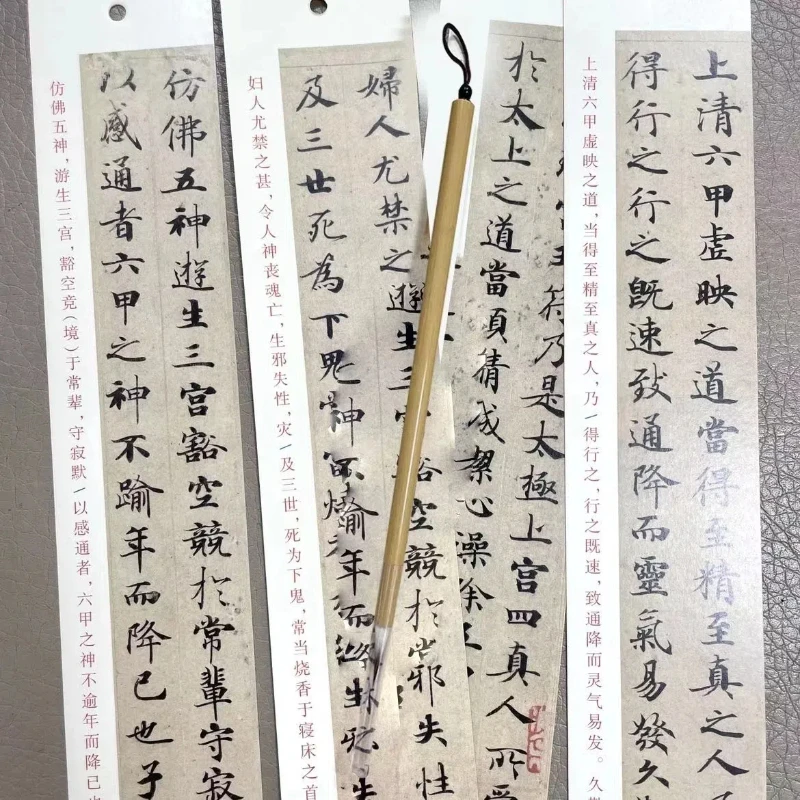 上清六甲虛映之道當得至精至真之人
得行之行之既速致通降而靈氣易發久
上清六甲虚映之道，当得至精至真之人，乃/得行之，行之既速，致通降而灵气易发。久
符乃是太極上宮四真人所
於太上之道當須精成潔心澡除
婦人尤禁之遊生三豁空競於邪失性
及三世死為下鬼神踰年而生
妇人尤禁之甚，令人神丧魂亡，生邪失性，灾/及三世，死为下鬼，常当烧香于寝床之首
仿佛五神遊生三宮豁空競於常輩守寂
以感通者六甲之神不踰年而降已也子
仿佛五神，游生三宫，豁空竞（境）于常辈，守寂默/以感通者，六甲之神不逾年而降已也